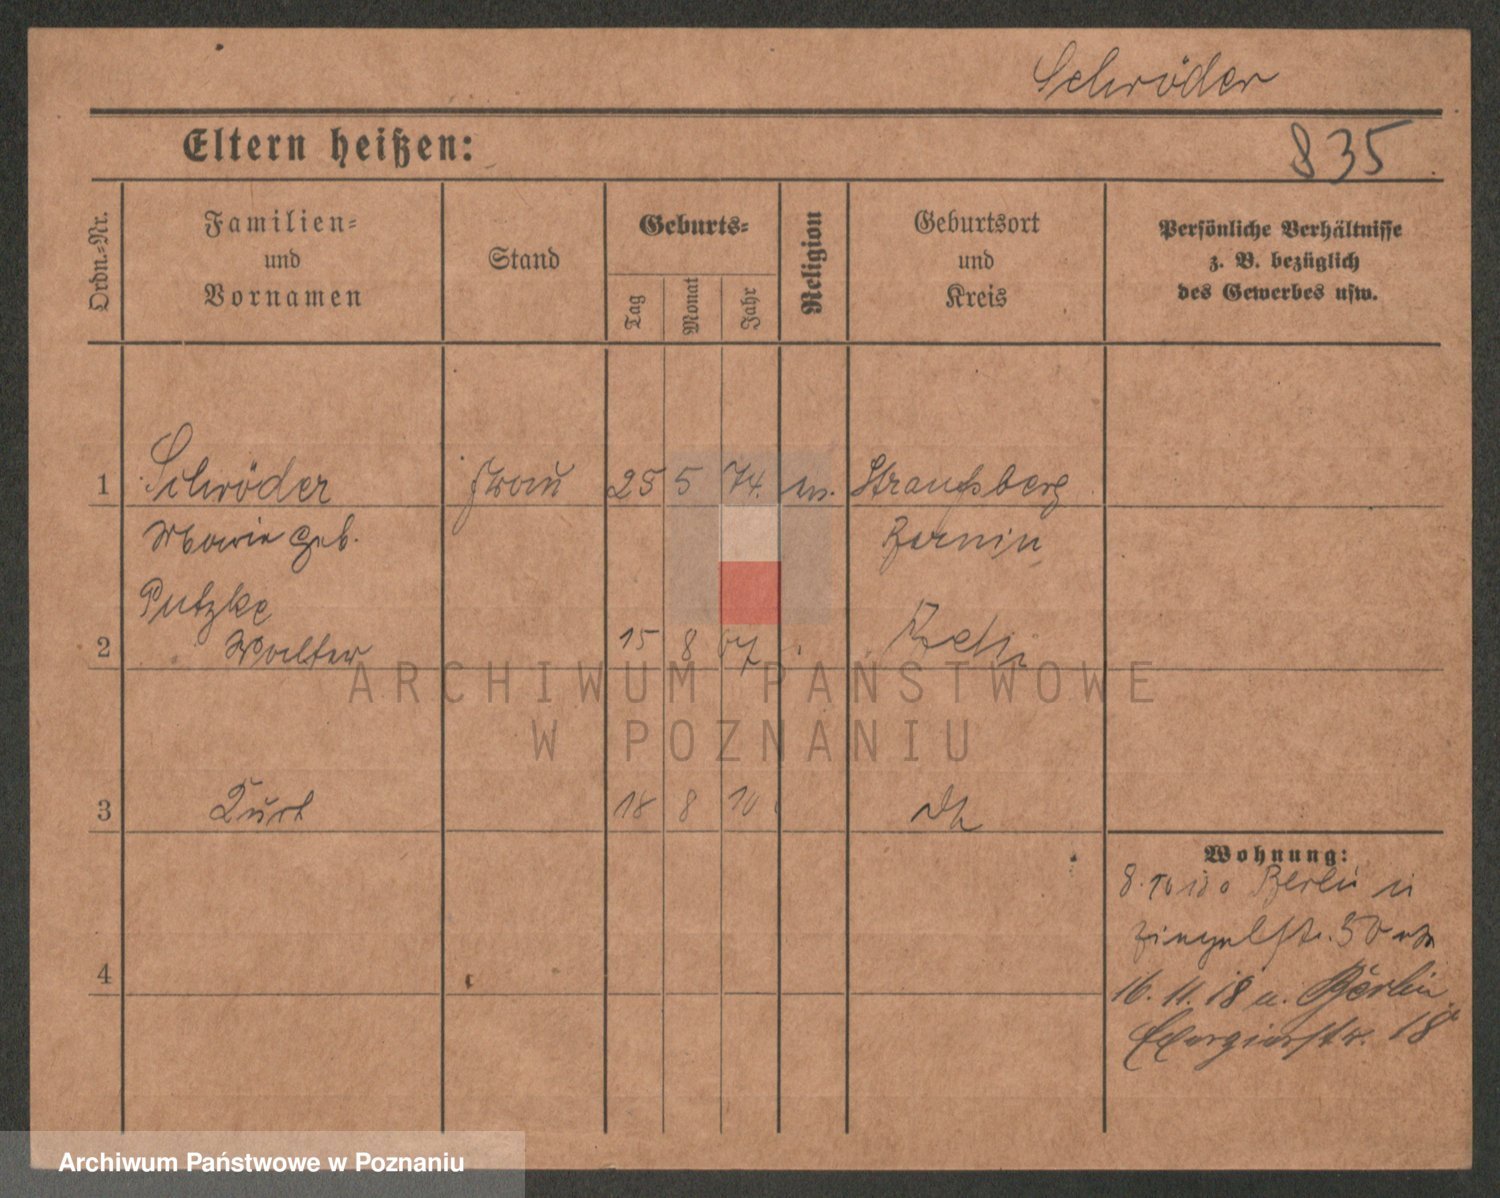 Schröder
Eltern heißen:
835
Ordn.-Nr.
Familien-
und
Vornamen
Stand
Geburts-
Tag
Monat
Jahr
Religion
Geburtsort
und
Kreis
Persönliche Verhältnisse
z. B. bezüglich
des Gewerbes usw.
1 Schröder Frau 25 5 74. Straußberg
Marie geb.
Putzke
2 Walter 15 8 07
3 Kurt 18 8 10
Wohnung:
Berlin
50
4
16. 11. 18 n. Berlin
18
ARCHIWUM PAŃSTWOWE
W POZNANIU
Archiwum Państwowe w Poznaniu